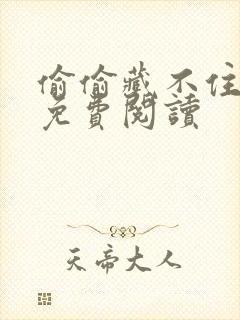 偷偷藏不住
免費閱讀
天帝大人